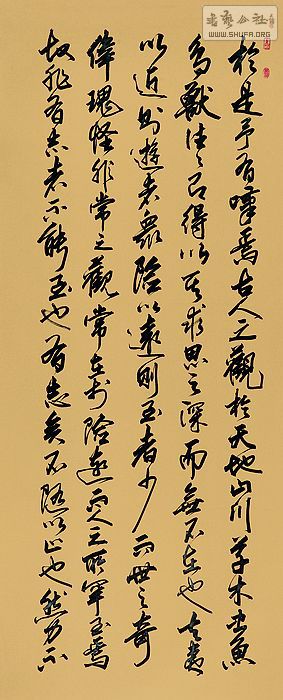 书艺公社
WWW.SHUFA.ORG
於是予有嘆焉古人之觀於天地山川草木虫魚
鳥獸往々有得以其求思之深而無不在也夫夷
以近則遊者衆險以遠則至者少而世之奇
偉瑰怪非常之觀常在於險遠而人之所罕至焉
故非有志者不能至也有志矣不隨以止也然力不